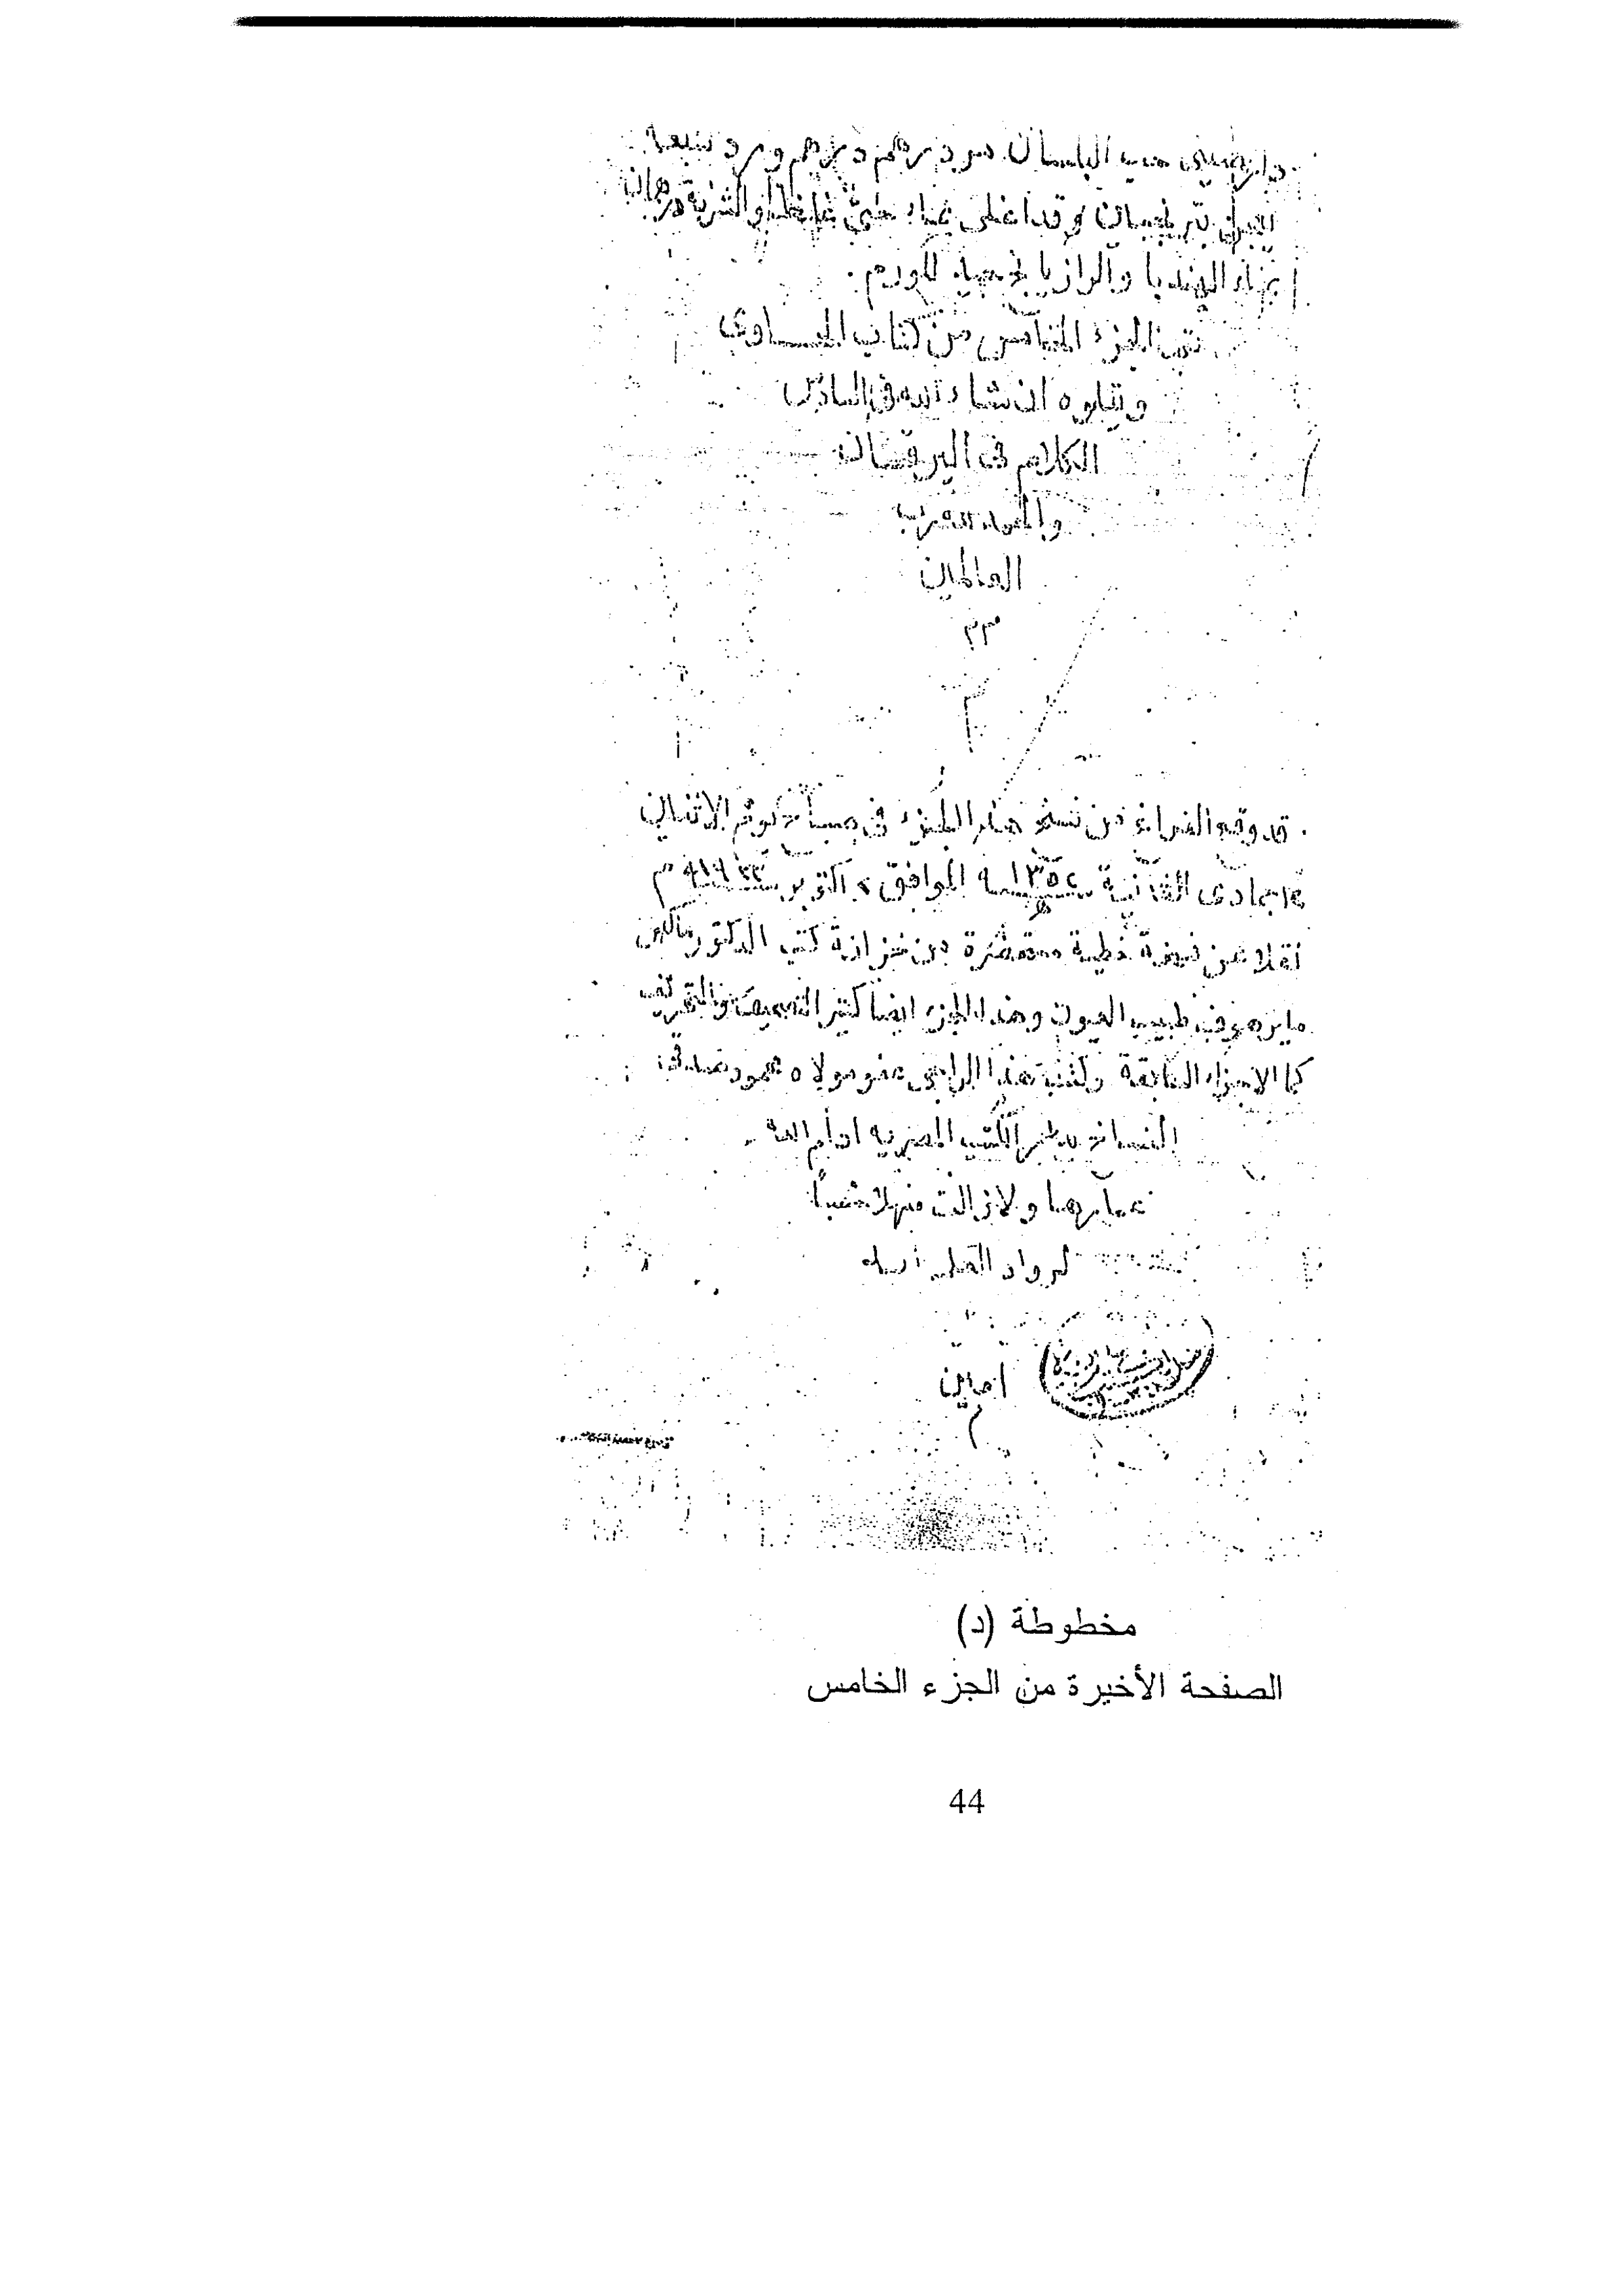 دارصيني حب البلسان درهم درهم ورد سبعة
بترنجبين وقد اعلى والشربة درهمان
بماء الهندبا والرازيانج جيد للورم.
تم الجزء الخامس من كتاب الحاوى
ويتلوه ان شاء الله فى السادس
الكلام فى اليرقان
والحمد لله رب
العالمين
قد وقع الفراغ من نسخ هذا الجزء فى مساء يوم الاثنين
جمادى الثانية سنة ١٣٥٢ الموافق اكتوبر سنة ١٩٣٣ م
نقلا عن نسخة خطية مستحضرة من خزانة كتب الدكتور ماكس
مايرهوف طبيب العيون وهذا الجزء ايضا كثير التصحيف والتحريف
كما الاجزاء السابقة وكتبه هذا الراجى عفو مولاه محمود صدقى
النساخ بدار الكتب المصريه ادام الله
عمارها ولا زالت منهلا عذبا
لرواد العلم
امين
مخطوطة (د)
الصفحة الأخيرة من الجزء الخامس
44